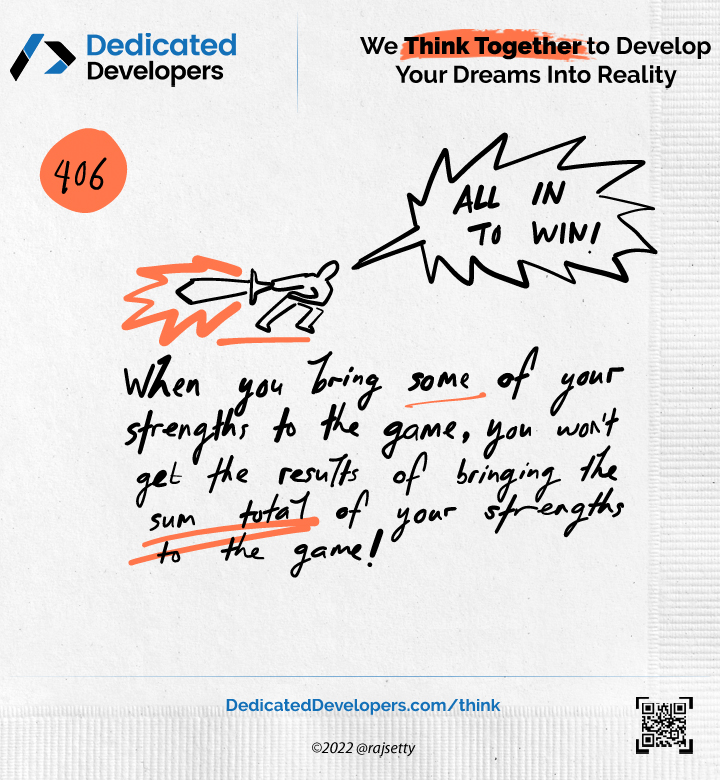 Dedicated
Developers
We Think Together to Develop
Your Dreams Into Reality
406
ALL IN
TO WIN!
When you bring some of your
strengths to the game, you won't
get the results of bringing the
sum total of your strengths
to the game!
DedicatedDevelopers.com/think
©2022 @rajsetty